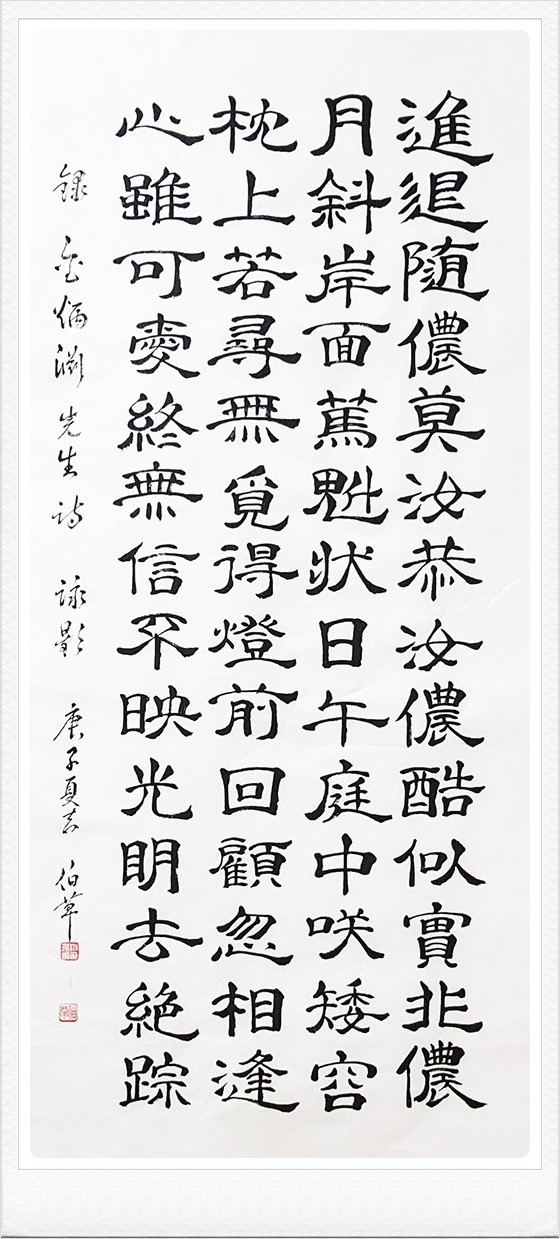 進退随儂莫汝恭汝儂酷似實非儂
月斜岸面篤魁狀日午庭中咲矮容
枕上若尋無覓得燈前回顧忽相逢
心雖可愛終無信不映光明去絶踪
錄 金炳淵先生詩 詠影 庚子夏 伯草